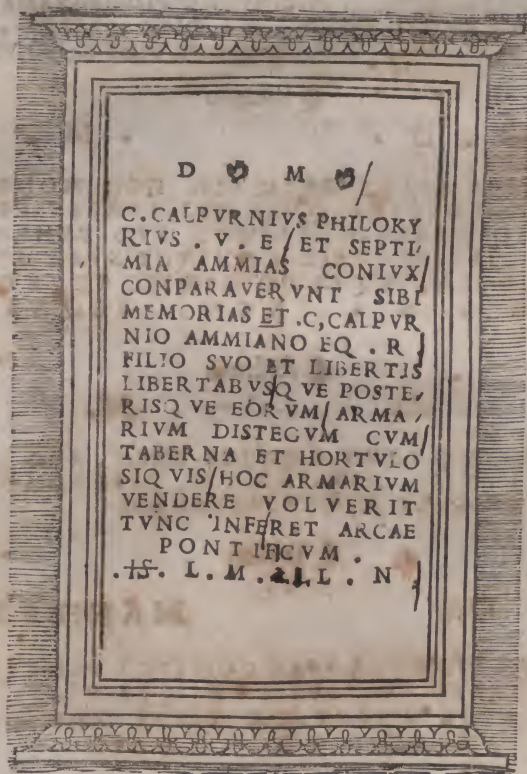 D ❦ M ❦
C. CALPVRNIVS PHILOKY
RIVS . V . E / ET SEPTI
MIA AMMIAS CONIVX
CONPARAVERVNT SIBI
MEMORIAS ET . C, CALPVR
NIO AMMIANO EQ . R
FILIO SVO ET LIBERTIS
LIBERTABVSQVE POSTE,
RISQVE EORVM/ ARMA,
RIVM DISTEGVM CVM
TABERNA ET HORTVLO
SIQVIS/HOC ARMARIVM
VENDERE VOLVERIT
TVNC INFERET ARCAE
PONTIFICVM .
.HS. L. M. L. N.